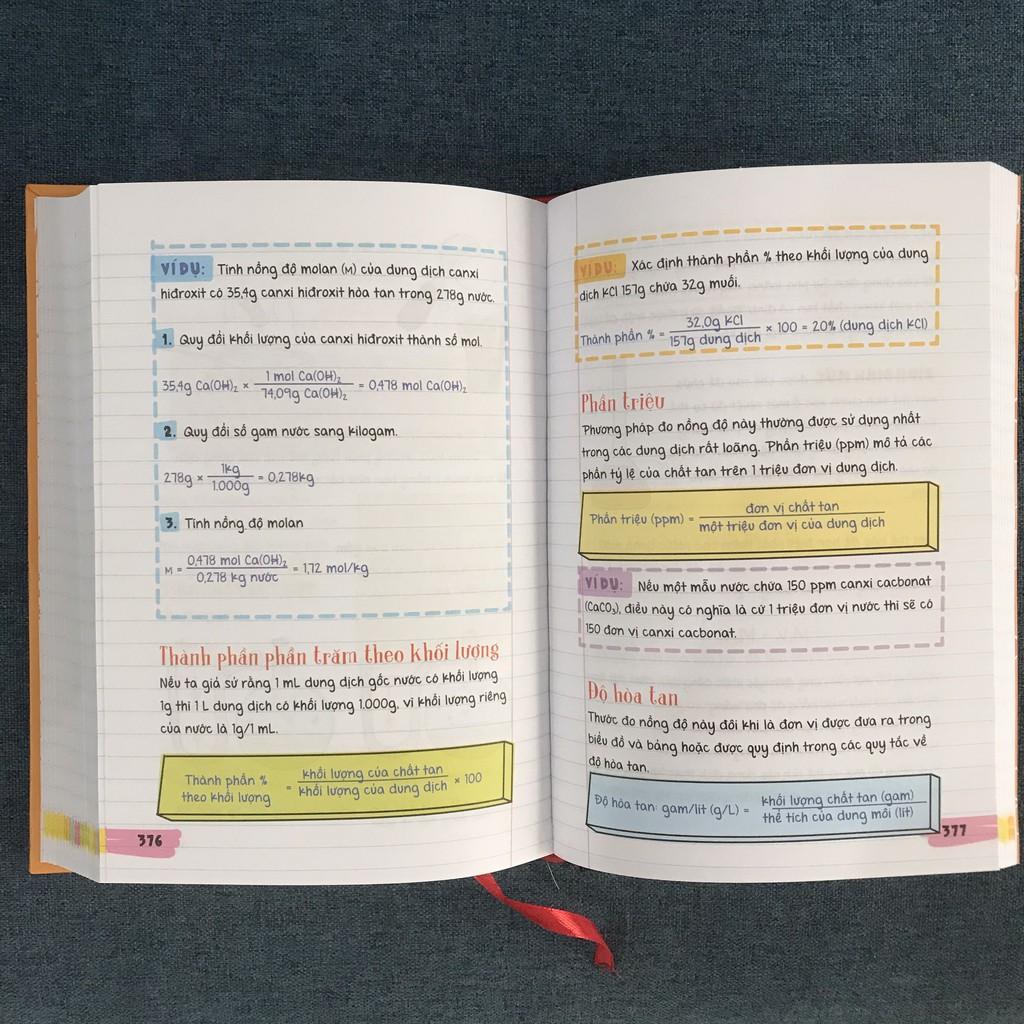 VÍ DỤ: Tính nồng độ molan (M) của dung dịch canxi
hiđroxit có 35,4g canxi hiđroxit hòa tan trong 278g nước.
1. Quy đổi khối lượng của canxi hiđroxit thành số mol.
35,4g Ca(OH)₂ × 1 mol Ca(OH)₂ / 74,09g Ca(OH)₂ = 0,478 mol Ca(OH)₂
2. Quy đổi số gam nước sang kilogam.
278g × 1kg / 1.000g = 0,278kg
3. Tính nồng độ molan
M = 0,478 mol Ca(OH)₂ / 0,278 kg nước = 1,72 mol/kg
Thành phần phần trăm theo khối lượng
Nếu ta giả sử rằng 1 mL dung dịch gốc nước có khối lượng
1g thì 1 L dung dịch có khối lượng 1.000g, vì khối lượng riêng
của nước là 1g/1 mL.
Thành phần % theo khối lượng = khối lượng của chất tan / khối lượng của dung dịch × 100
376
VÍ DỤ: Xác định thành phần % theo khối lượng của dung
dịch KCl 157g chứa 32g muối.
Thành phần % = 32,0g KCl / 157g dung dịch × 100 = 20% (dung dịch KCl)
Phần triệu
Phương pháp đo nồng độ này thường được sử dụng nhất
trong các dung dịch rất loãng. Phần triệu (ppm) mô tả các
phần tỷ lệ của chất tan trên 1 triệu đơn vị dung dịch.
Phần triệu (ppm) = đơn vị chất tan / một triệu đơn vị của dung dịch
VÍ DỤ: Nếu một mẫu nước chứa 150 ppm canxi cacbonat
(CaCO₃), điều này có nghĩa là cứ 1 triệu đơn vị nước thì sẽ có
150 đơn vị canxi cacbonat.
Độ hòa tan
Thước đo nồng độ này đôi khi là đơn vị được đưa ra trong
biểu đồ và bảng hoặc được quy định trong các quy tắc về
độ hòa tan.
Độ hòa tan: gam/lít (g/L) = khối lượng chất tan (gam) / thể tích của dung môi (lít)
377